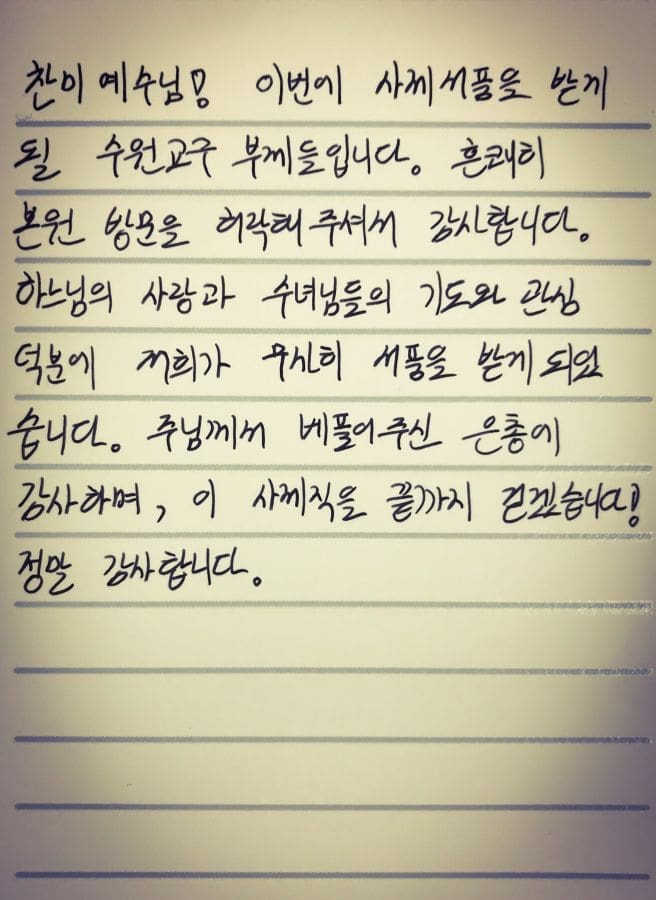 찬미 예수님! 이번에 사제서품을 받게
될 수원교구 부제들입니다. 흔쾌히
본원 방문을 허락해주셔서 감사합니다.
하느님의 사랑과 수녀님들의 기도와 관심
덕분에 저희가 무사히 서품을 받게 되었
습니다. 주님께서 베풀어주신 은총에
감사하며, 이 사제직을 끝까지 걷겠습니다!
정말 감사합니다.